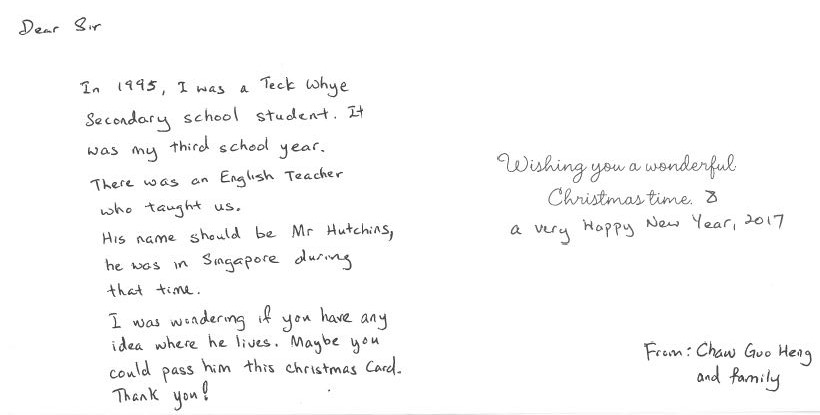 Dear Sir
In 1995, I was a Teck Whye
Secondary school student. It
was my third school year.
There was an English Teacher
who taught us.
His name should be Mr Hutchins,
he was in Singapore during
that time.
I was wondering if you have any
idea where he lives. Maybe you
could pass him this christmas Card.
Thank you!
Wishing you a wonderful
Christmas time. &
a very Happy New Year, 2017
From: Chaw Guo Heng
and family